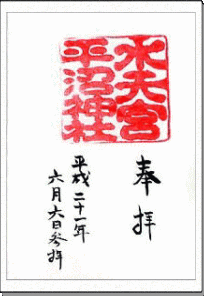 水天宮
平沼神社
奉拝
平成二十一年
六月六日参拝